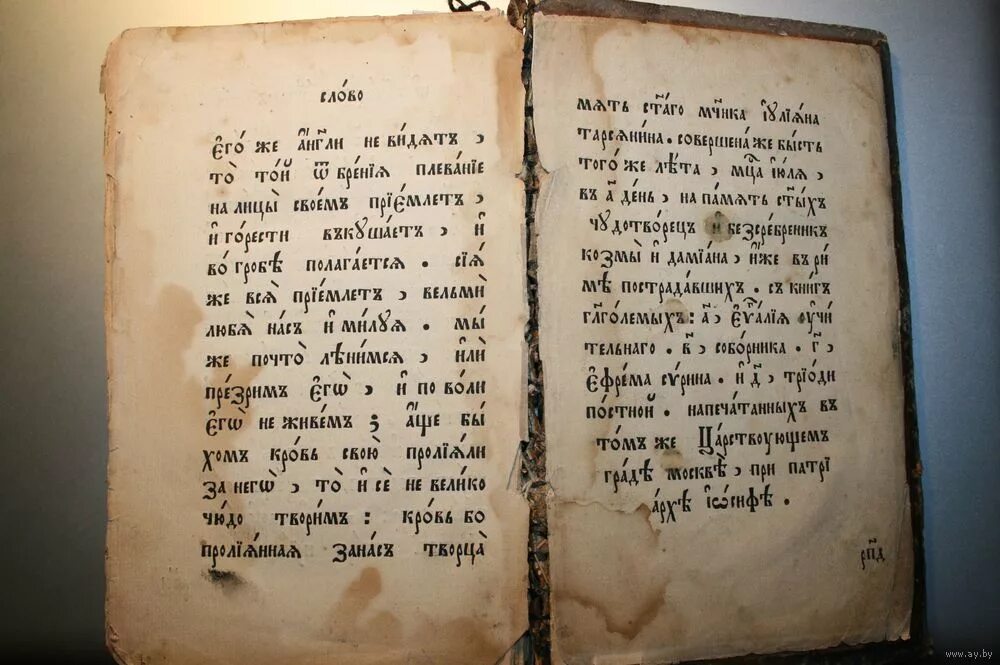 сло́во
є҆го́ же а҆́гг҃ли не ви́дятъ ,
то̀ то́й ѿ бре́нїѧ плева́нїе
на лицы̀ своє́мъ прїе́млетъ ,
и҆ го́рести въкꙋша́етъ , и҆
во́ гробѣ полага́етсѧ . сїѧ́
же всѧ̀ прїе́млетъ , вельмѝ
любѧ̀ на́съ и҆ ми́лꙋѧ . мы́
же почто̀ лѣни́мсѧ , и҆лѝ
пре́зримъ є҆гѡ̀ , и҆ по во́ли
є҆гѡ̀ не живе́мъ ; а҆́ще бы́
хомъ кро́вь свою̀ проліѧ́ли
за негѡ̀ , то̀ и҆ сѐ не вели́ко
чю́до твори́мъ : кро́вь бо
проліѧ́нная зана́съ творца̀
мять ст҃а́го мч҃нка і҆ꙋлїѧ́на
тарсѧни́на . соверше́на же бы́сть
того́ же лѣ́та , мц҃а і҆ю́лѧ ,
въ а҃ де́нь , на па́мять ст҃ы́хъ
чꙋдотво́рецъ и҆ безсре́бреникъ
козмы̀ и҆ дамїа́на , и҆́же въ ри́
мѣ пострада́вшихъ . съ кни́гъ
гл҃го́лемыхъ : а҃ , є҆ѵⷢ҇а́лїѧ ᲂу҆чи́
тельнаго . в҃ , собо́рника . г҃ ,
є҆фре́ма си́рина . и҆ д҃ , трїо́ди
по́стной . напеча́танныхъ въ
то́мъ же Ца́рствꙋющемъ
гра́дѣ москвѣ̀ , при патрї
а́рхѣ і҆ѡ́сифѣ .
рп҃д
www.ay.by